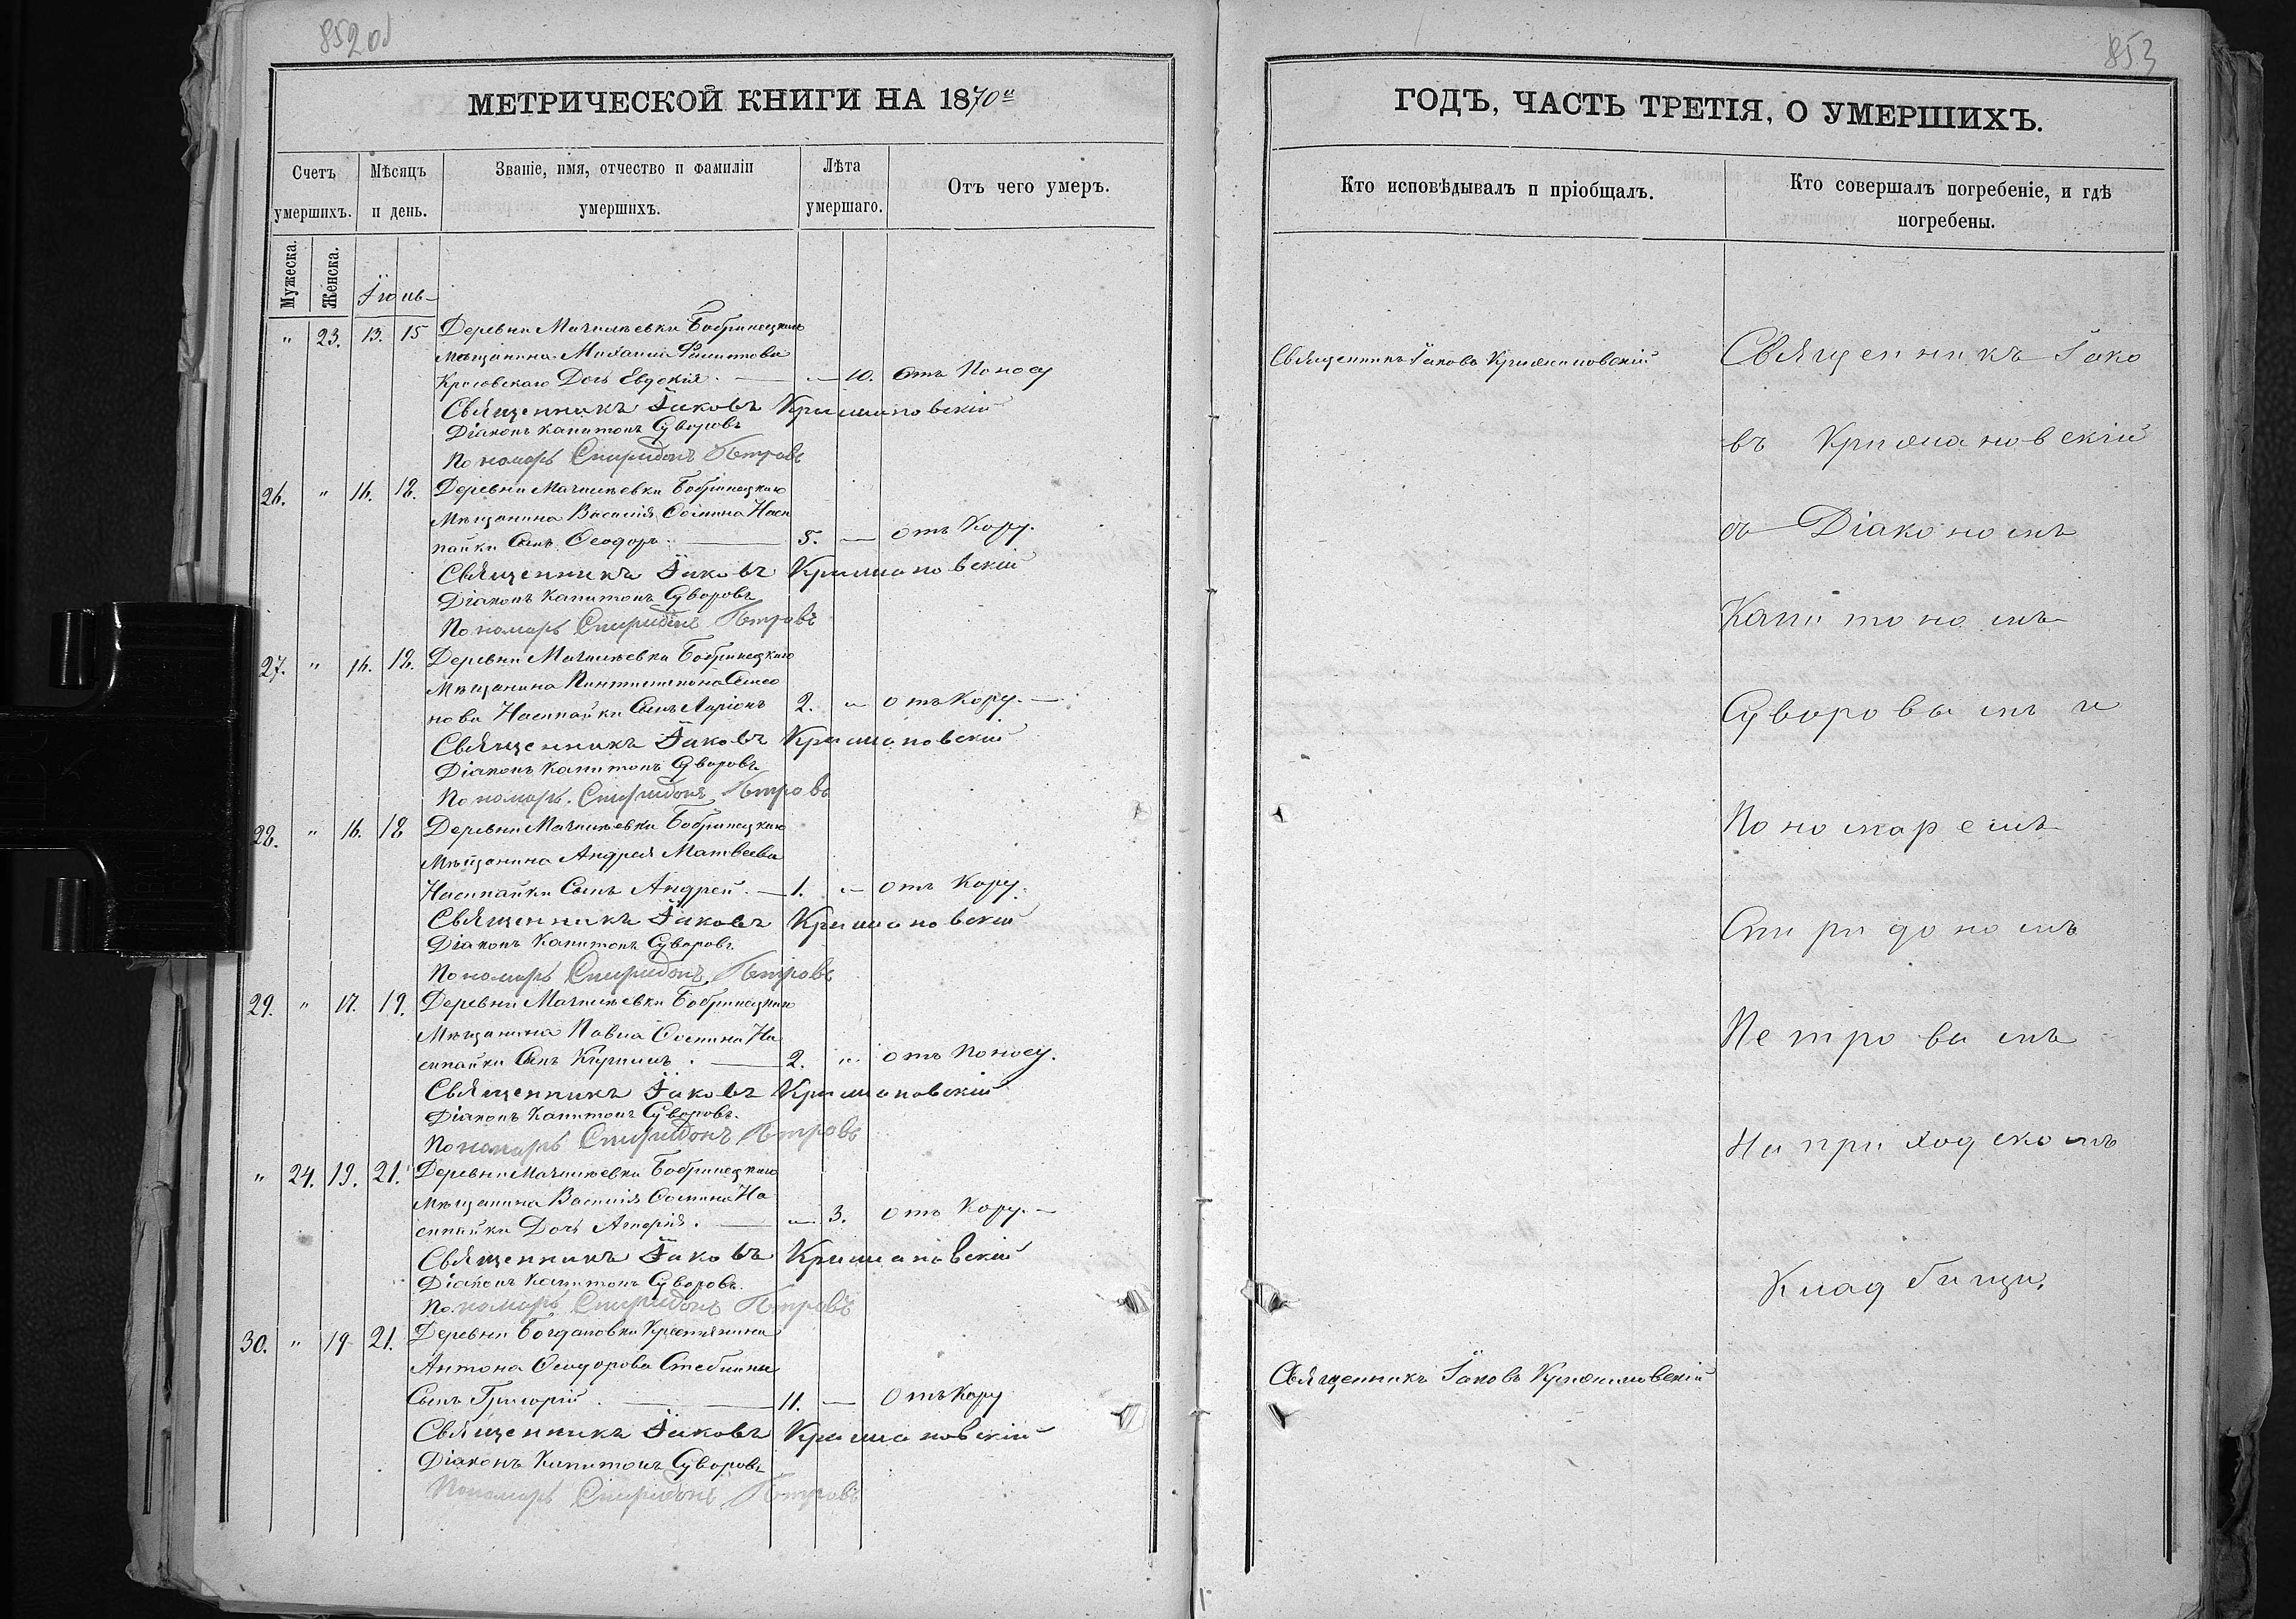 852об
МЕТРИЧЕСКОЙ КНИГИ НА 1870й
Счетъ умершихъ.
Мѣсяцъ и день.
Званіе, имя, отчество и фамиліи умершихъ.
Лѣта умершаго.
Отъ чего умеръ.
Мужеска.
Женска.
Іюнь
" 23. 13. 15 Деревни Мачишевки Бобринецкаго
мѣщанина Михаила Филиппова
Дочь Евдокія. — — 10. Отъ Поносу
Священникъ Іаковъ Крыжановскій
Діаконъ Капитонъ Суворовъ
Пономарь Спиридонъ Петровъ
26. " 16. 18. Деревни Мачишевки Бобринецкаго
Мѣщанина Василія Осипина Насы
пайки Сынъ Ѳеодоръ. — 5. — отъ Кору.
Священникъ Іаковъ Крыжановскій
Діаконъ Капитонъ Суворовъ
Пономарь Спиридонъ Петровъ
27. " 16. 18. Деревни Мачишевки Бобринецкаго
Мѣщанина Пантелимона Семе
нова Насыпайки Сынъ Ларіонъ 2. " отъ Кору. —
Священникъ Іаковъ Крыжановскій
Діаконъ Капитонъ Суворовъ
Пономарь. Спиридонъ Петровъ
28. " 16. 18 Деревни Мачишевки Бобринецкаго
Мѣщанина Андрея Матвеева
Насыпайки Сынъ Андрей. — 1. " отъ Кору.
Священникъ Іаковъ Крыжановскій
Діаконъ Капитонъ Суворовъ
Пономарь Спиридонъ Петровъ
29. " 17. 19. Деревни Мачишевки Бобринецкаго
Мѣщанина Павла Осипина На
сыпайки Сынъ Кирилъ. — 2. " отъ Поносу.
Священникъ Іаковъ Крыжановскій
Діаконъ Капитонъ Суворовъ.
Пономарь Спиридонъ Петровъ
" 24. 19. 21. Деревни Мачишевки Бобринецкаго
Мѣщанина Василія Осипина На
сыпайки Дочь . — " 3. отъ Кору. —
Священникъ Іаковъ Крыжановскій
Діаконъ Капитонъ Суворовъ.
Пономарь Спиридонъ Петровъ
30. " 19 21. Деревни Богдановки Крестянина
Антона Ѳеодорова
Сынъ Григорій. — — 11. — Отъ Кору
Священникъ Іаковъ Крыжановскій
Діаконъ Капитонъ Суворовъ
Пономарь Спиридонъ Петровъ
853
ГОДЪ, ЧАСТЬ ТРЕТІЯ, О УМЕРШИХЪ.
Кто исповѣдывалъ и пріобщалъ.
Кто совершалъ погребеніе, и гдѣ погребены.
Священникъ Іаковъ Крыжановскій
Священникъ Іако
въ Крыжановскій
съ Діакономъ
Капитономъ
Суворовымъ и
Пономаремъ
Спиридономъ
Петровымъ
На приходскомъ
Кладбищи,
Священникъ Іаковъ Крыжановскій